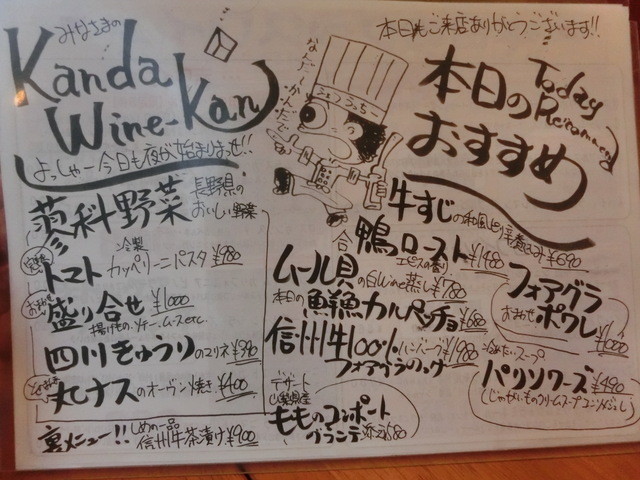 みなさまの
Kanda
Wine-Kan
よっしゃー今日も夜が始まりまっせ!!
本日もご来店ありがとうございます!!
Today
本日の
おすすめ
なんだ!かんだで!
シェフ
蓼科野菜 長野県の
おいしい野菜
トマト 冷製
カッペリーニパスタ ¥980
おまかせ
盛り合せ ¥1000
揚げもの、ソテー、ムース etc.
四川きゅうりのマリネ
丸ナスのオーヴン焼き ¥400
裏メニュー!! しめの一品
信州牛茶漬け ¥900
牛すじの和風とろ煮込み ¥690
鴨ロースト ¥1480
ムール貝の白wine蒸し ¥780
本日の鮮魚カルパッチョ ¥680
信州牛100%ハンバーグ ¥1980
フォアグラのっけ
フォアグラ
ポワレ
¥1000
冷めたいスープ
パリソワーズ ¥490
(じゃがいものクリームスープ コンソメジュレ)
デザート
山梨県産
もものコンポート
グランテ 添え 580